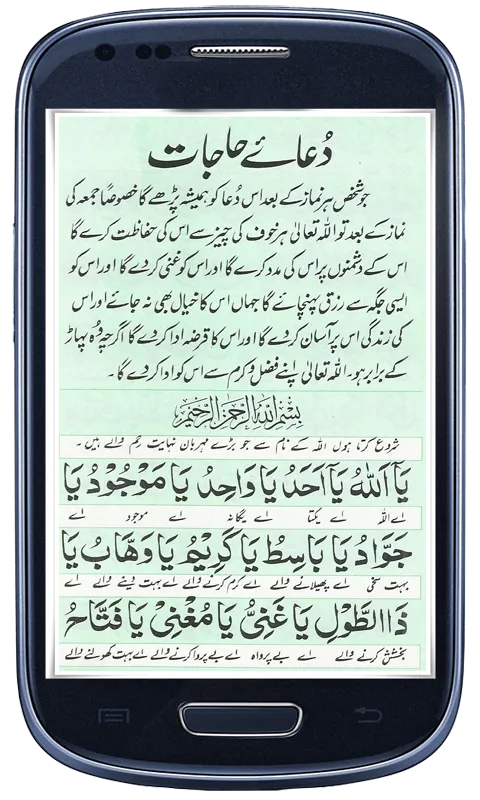 دُعائے حاجات
جو شخص ہر نماز کے بعد اس دُعا کو ہمیشہ پڑھے گا خصوصًا جمعہ کی
نماز کے بعد تو اللہ تعالیٰ ہر خوف کی چیز سے اس کی حفاظت کرے گا
اس کے دشمنوں پر اس کی مدد کرے گا اور اس کو غنی کر دے گا اور اس کو
ایسی جگہ سے رزق پہنچائے گا جہاں اس کا خیال بھی نہ جائے اور اس
کی زندگی اس پر آسان کر دے گا اور اس کا قرضہ ادا کر دے گا اگرچہ وُہ پہاڑ
کے برابر ہو۔ اللہ تعالیٰ اپنے فضل و کرم سے اس کو ادا کر دے گا۔
بِسْمِ اللّٰهِ الرَّحْمٰنِ الرَّحِيْمِ
شروع کرتا ہوں اللہ کے نام سے جو بڑے مہربان نہایت رحم والے ہیں ۔
يَآ اَللّٰهُ يَآ اَحَدُ يَا وَاحِدُ يَا مَوْجُوْدُ يَا
اے اللہ اے یکتا اے یگانہ اے موجود اے
جَوَّادُ يَا بَاسِطُ يَا كَرِيْمُ يَا وَهَّابُ يَا
بہت سخی اے پھیلانے والے اے کرم کرنے والے اے بہت دینے والے اے
ذَا الطَّوْلِ يَا غَنِيُّ يَا مُغْنِيْ يَا فَتَّاحُ
بخشش کرنے والے اے بے پرواہ اے بے پروا کرنے والے اے بہت کھولنے والے